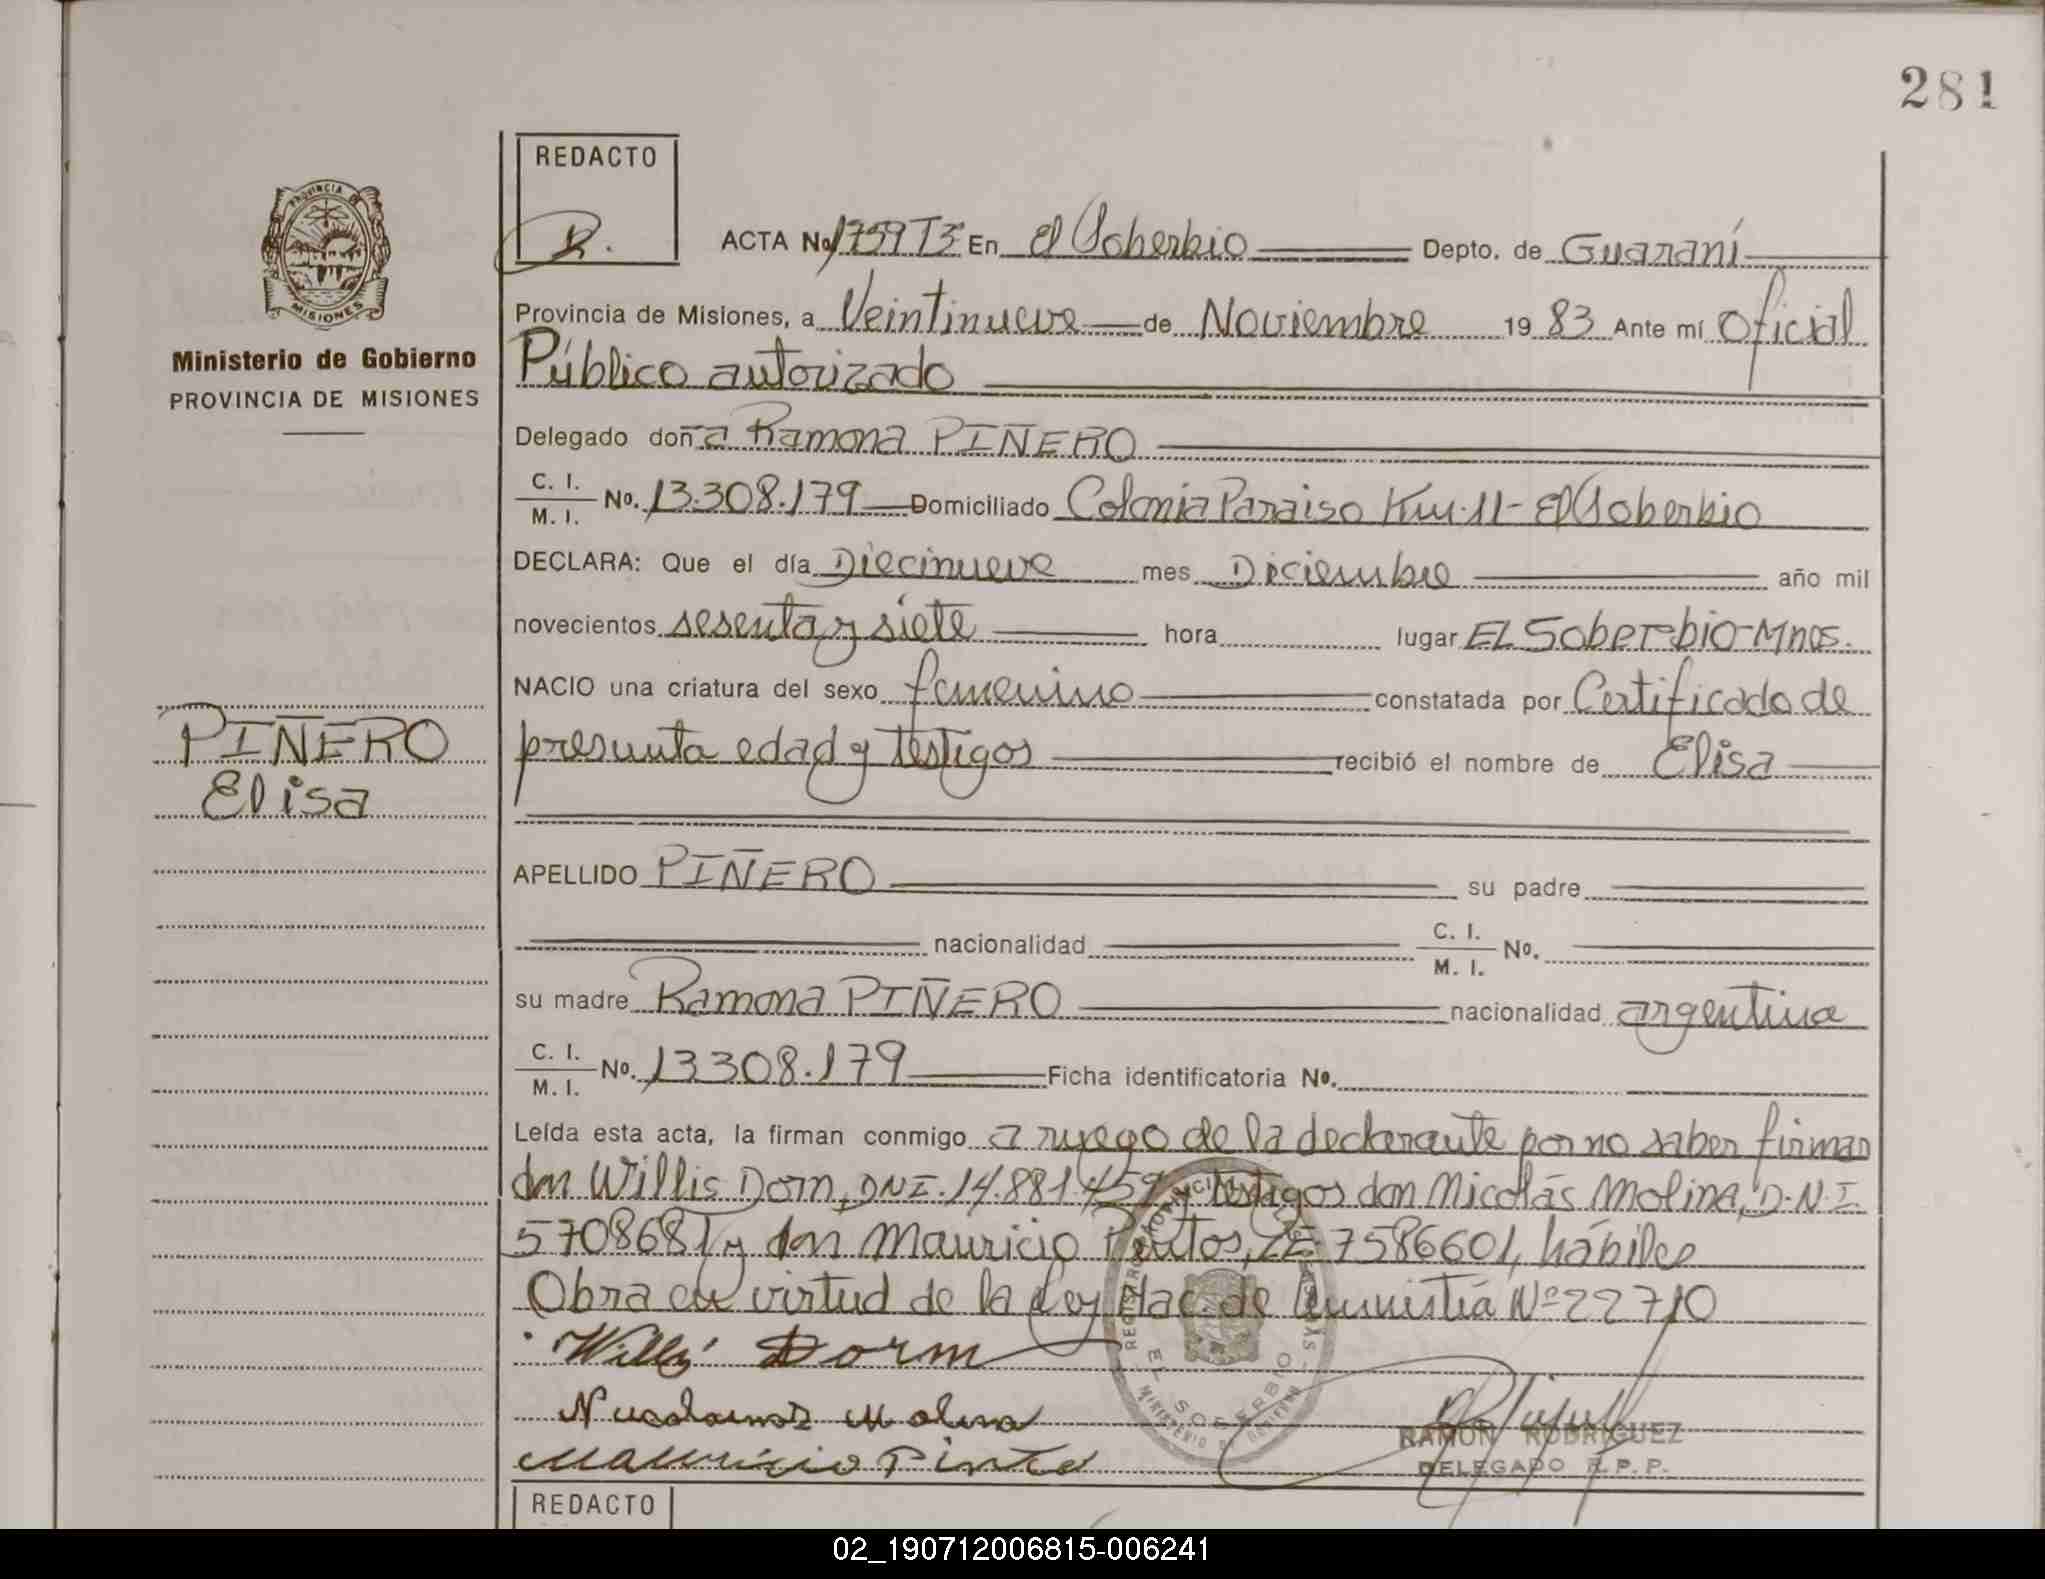 281
REDACTO
R.
PROVINCIA
MISIONES
Ministerio de Gobierno
PROVINCIA DE MISIONES
ACTA No 1759 T3 En El Soberbio Depto. de Guaraní
Provincia de Misiones, a Veintinueve de Noviembre 19 83 Ante mí Oficial
Público autorizado
Delegado doña Ramona PIÑERO
C. I.
M. I. No. 13.308.179 Domiciliado Colonia Paraiso Km. 11 - El Soberbio
DECLARA: Que el día Diecinueve mes Diciembre año mil
novecientos sesenta y siete hora lugar EL Soberbio-Mnes.
NACIO una criatura del sexo femenino constatada por Certificado de
presunta edad y testigos recibió el nombre de Elisa
PIÑERO
Elisa
APELLIDO PIÑERO su padre
nacionalidad C. I.
M. I. No.
su madre Ramona PIÑERO nacionalidad argentina
C. I.
M. I. No. 13308.179 Ficha identificatoria No.
Leída esta acta, la firman conmigo a ruego de la declarante por no saber firmar
don Willis Dorn, DNI. 14.881.459 y testigos don Nicolás Molina, D.N.I.
5708681 y don Mauricio Pintos, LE 7586601, hábiles
Obra en virtud de la Ley Nac. de Amnistía Nº 22710
Willy Dorm
Molina
Mauricio Pinto
EL SOBERBIO
RAMON RODRIGUEZ
DELEGADO R.P.P.
REDACTO
02_190712006815-006241